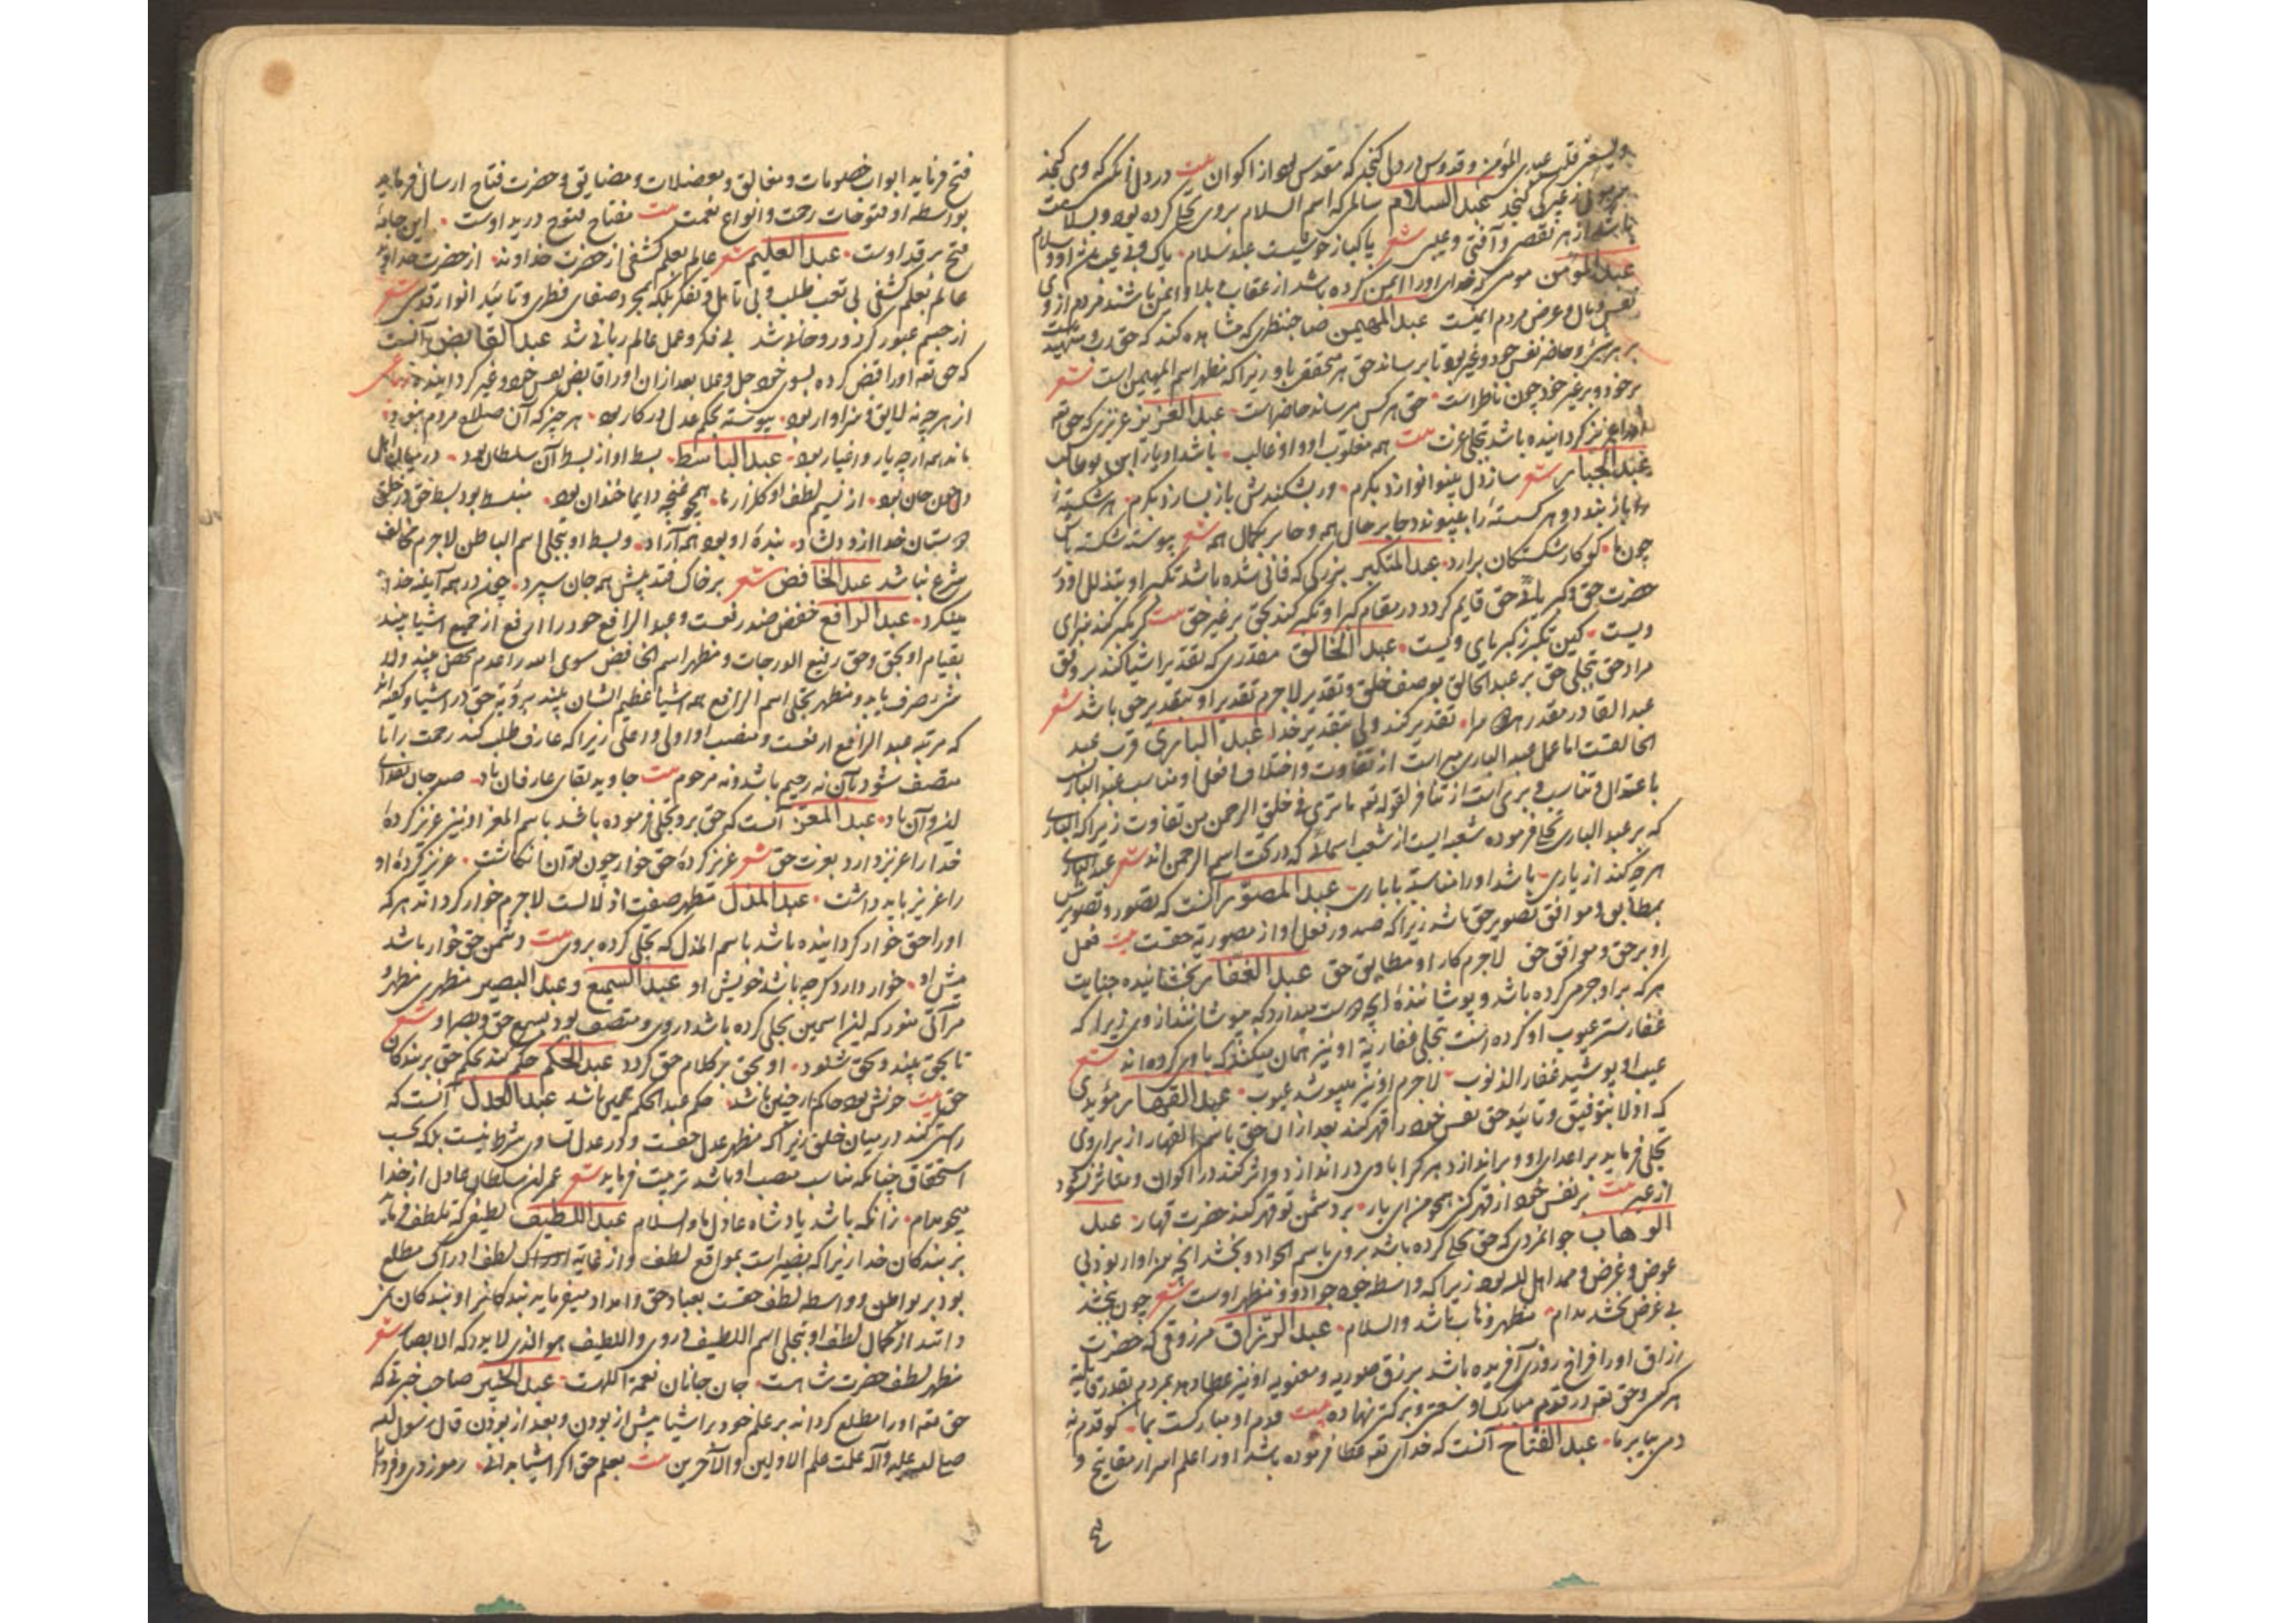 ویسعنی قلب عبدی المؤمن و قدوس در دل کنجد که مقدس بود از اکوان بیت در دل زانکه که وی کنجد
غیر کی کنجد عبد السلام سالمی که اسم السلام بروی تجلی کرده بود و بسلامت
باشد از هر نقص و آفتی و عیبی شعر پاکباز خوشیست عبد سلام
عبد المؤمن مومنی که خدای او را ایمن کرده باشد از عقاب و بلا و ایمن باشند مردم ازوی
نفس و مال و عرض مردم ایمنست عبد المهیمن صاحبنظری که مشاهده کند که حق
زیرا که مظهر اسم المهیمن است شعر
بر خود و بر غیر خود چون ناظر است حق هر کس میرساند حاضر است عبد العزیز عزیزی که حق تع
او را عزیز کردانیده باشد بتجلی عزت بیت همه مغلوب او و او غالب
عبد الجبار شعر ساز دل بینوا نوازد بکرم ور بشکندش باز بسازد بکرم هر شکسته
را باز بندد و هر کسسته را بپیوندد جابر حال همه و جابر بکمال همه شعر پیوسته شکسته باش
چون ما کو کار شکستکان برارد عبد المتکبر بزرکی که فانی شده باشد تکبر او بتذلل او در
حضرت حق و کبریای حق قایم کردد در مقام کبر او تکبر کند بحق بر غیر حق بیت کر تکبر کند سزای
ویست کین تکبر ز کبریای ویست عبد الخالق مقدری که تقدیر اشیا کند بر وفق
مراد حق بتجلی حق بر عبد الخالق بوصف خلق و تقدیر لاجرم تقدیر او بتقدیر حق باشد شعر
عبد القادر مقدر بود ما را تقدیر کند ولی بتقدیر خدا عبد الباری قرب عبد
الخالقست اما عمل عبد الباری مبراست از تفاوت و اختلاف فعل او مناسب عبد الباری
با عتدال و تناسب و بریست از تنافر لقوله تع ما تری فی خلق الرحمن من تفاوت زیرا که الباری
که بر عبد الباری تجلی فرموده شعبه ایست از شعب اسمائی که در تحت اسم الرحمن اند شعر عبد الباری
هرچه کند از یاری باشد او را مناسبت با باری عبد المصور آنست که تصور و تصویرش
بمطابق و موافق تصویر حق باشد زیرا که صدور فعل او از مصوریة حقست بیت فعل
او بر حق و موافق حق لاجرم کار او مطابق حق عبد الغفار بخشانیده جنایت
هر که بر او جرمی کرده باشد و پوشاننده
غفار ستر عیوب او کرده است بتجلی غفاریة او نیز همان میکند که با وی کرده اند شعر
عیب او پوشید غفار الذنوب لاجرم او نیز میپوشد عیوب عبد القهار مؤیدی
که اولا بتوفیق و تایید حق نفس خود را قهر کند بعد از ان حق باسم القهار از برای وی
تجلی فرماید بر اعدای او و براندازد هر که را با وی در اندازد و اثر کند در اکوان و متاثر نشود
از غیر بیت بر نفس خود از قهر کنی همچو من ای یار بر دشمن تو قهر کند حضرت قهار عبد
الوهاب جوانمردی که حق تجلی کرده باشد بروی باسم الجواد و بخشد انچه سزاوار بود بی
عوض و غرض و ممد اهل الله بود زیرا که واسطه جود جواد و مظهر اوست شعر چون بخشد
بی غرض بخشد مدام مظهر وهاب باشد والسلام عبد الرزاق مرزوقی که حضرت
رزاق او را فراخ روزی آفریده باشد برزق صوریه و معنویه او نیز عطا دهد بمردم بقدر قابلیة
هر کس و حق تع در قدم مبارک او سعتی و برکتی نهاده بیت قدم او مبارکست بما کو قدم نه
دمی بیا بر ما عبد الفتاح آنست که خدای تع عطا فرموده باشد او را علم اسرار مفاتیح و
ع
فتح فرماید ابواب خصومات و مغالق و معضلات و مضایق و حضرت فتاح ارسال فرماید
بواسطه او فتوحات رحمت و انواع نعمت بیت مفتاح فتوح در ید اوست این جامهٔ
فتح بر قد اوست عبد العلیم شعر عالم بعلم کشفی از حضرت خداوند از حضرت خداوند
عالم بعلم کشفی بی تعب طلب و بی تامل و تفکر بلکه بمجرد صفای فطری و تایید انوار قدسی شعر
از جسم عبور کرد و روحانی شد بی فکر و عمل عالم ربانی شد عبد القابض آنست
که حق تع او را قبض کرده بسوی خود جل و علا بعد از ان او را قابض نفس خود و غیر کردانیده رباعی
از هر چه نه لایق و سزاوار بود پیوسته بحکم عدل در کار بود هر چیز که آن صلاح مردم نبود
ماند همه ارچه یار و اغیار بود عبد الباسط بسط او از بسط آن سلطان بود در میان اهل
دل چون جان بود از نسیم لطف او کلزار ما همچو غنچه دایما خندان بود منبسط بود بسط حق در خلق
دوستان خدا ازو دلشاد بنده او بود همه آزاد و بسط او بتجلی اسم الباطن لاجرم مخالف
شرع نباشد عبد الخافض شعر بر خاک فتد پیش همه جان سپرد چون در همه آینه خدا
مینکرد عبد الرافع خفض ضد رفعست و عبد الرافع خود را ارفع از جمیع اشیا بیند
بقیام او بحق و حق رفیع الدرجات و مظهر اسم الخافض سوی الله را عدم محض بیند
و مظهر تجلی اسم الرافع همه اشیا عظیم الشان بیند برؤیة حق در اشیا
که مرتبه عبد الرافع ارفعست و منصب او اولی و اعلی زیرا که عارف طلب کند رحمت را تا
متصف شود بآن نه رحیم باشد و نه مرحوم بیت جاوید بقای عارفان باد صد جان بفدای
این و آن باد عبد المعز آنست که حق برو تجلی فرموده باشد باسم المعز او نیز عزیز کرده
خدا را عزیز دارد بعزت حق شعر عزیز کرده حق خوار چون توان انکاشت عزیز کرده او
را عزیز باید داشت عبد المذل مظهر صفت اذلالست لاجرم خوار کرداند هر که
او را حق خوار کردانیده باشد باسم المذل که تجلی کرده بروی بیت دشمن حق خوار باشد
پیش او خوار دارد کرچه باشد خویش او عبد السمیع و عبد البصیر مظهری مظهر و
مرآتی منور که این اسمین تجلی کرده باشد در وی و متصف بود بسمع حق و بصر او شعر
تا بحق بیند و بحق شنود او بحق بر کلام حق کرود عبد الحکم حکم کند بحکم حق بر بندکان
حق بیت خوش بود حاکم ار چنین باشد حکم عبد الحکم همین باشد عبد العدل آنست که
راستی کند در میان خلق زیرا که مظهر عدل حقست و در عدل تساوی شرط نیست بلکه بحسب
استحقاق چنانکه مناسب منصب او باشد تربیت فرماید شعر عمر این سلطان عادل از خدا
میخوهم مدام زانکه باشد پادشاه عادل ما والسلام عبد اللطیف لطیفی که تلطف فرماید
بر بندکان خدا زیرا که بصیر است بمواقع لطف و از غایة لطف ادراک مطلع
بود بر بواطن و واسطه لطف حقست بعباد حق و امداد میفرماید بندکانرا و بندکان نمی
دانند از کمال لطف او بتجلی اسم اللطیف در وی و اللطیف هو الذی لا یدرکه الابصار شعر
مظهر لطف حضرت شاهست جان جانان نعمة اللهست عبد الخبیر صاحب خبرتی که
حق تع او را مطلع کرداند بر علم خود بر اشیا پیش از بودن و بعد از بودن قال رسول الله
صلی الله علیه و آله علمت علم الاولین و الآخرین بیت بعلم حق اکر اشیا بدانی رموز دی و فردا